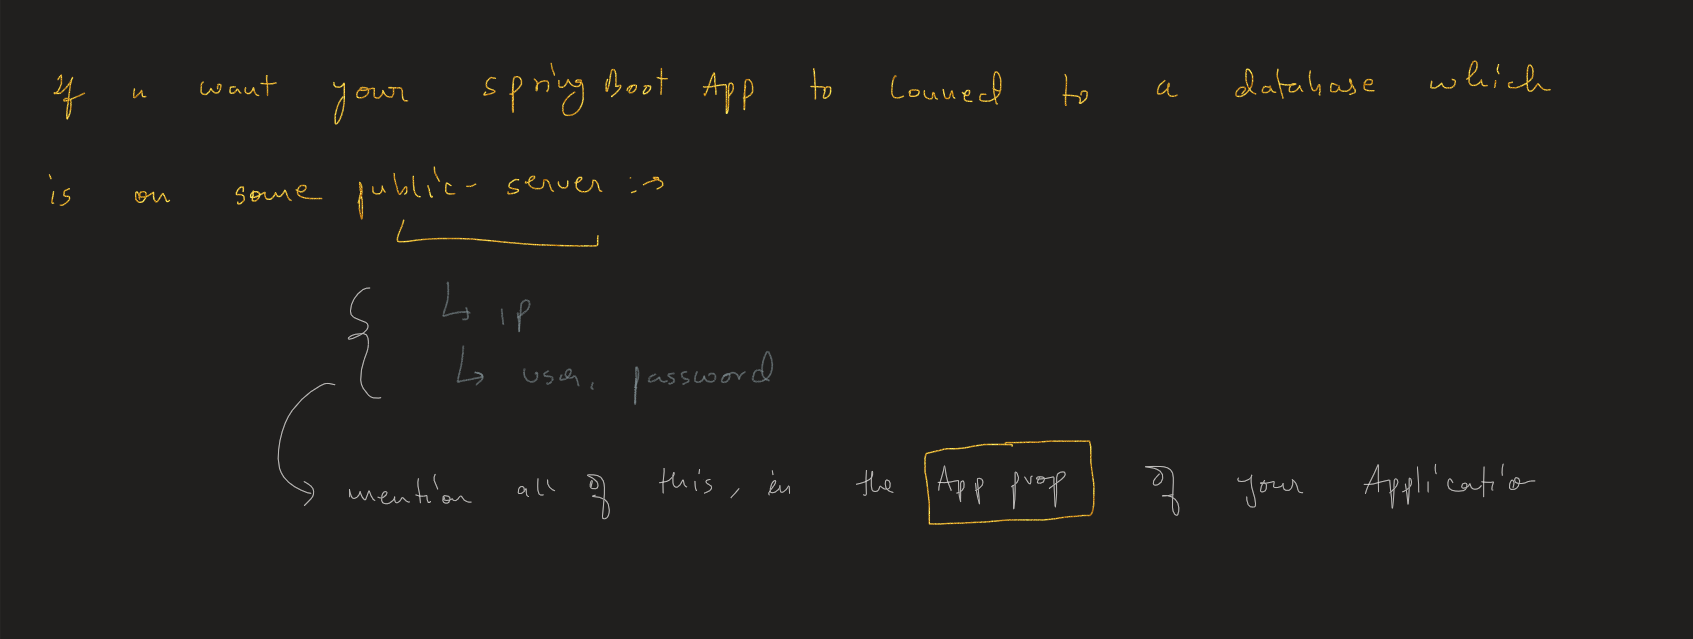 If u want your spring Boot App to connect to a database which
is on some public- server :→
↳ ip
↳ user, password
→ mention all of this, in the App prop of your Applicatio